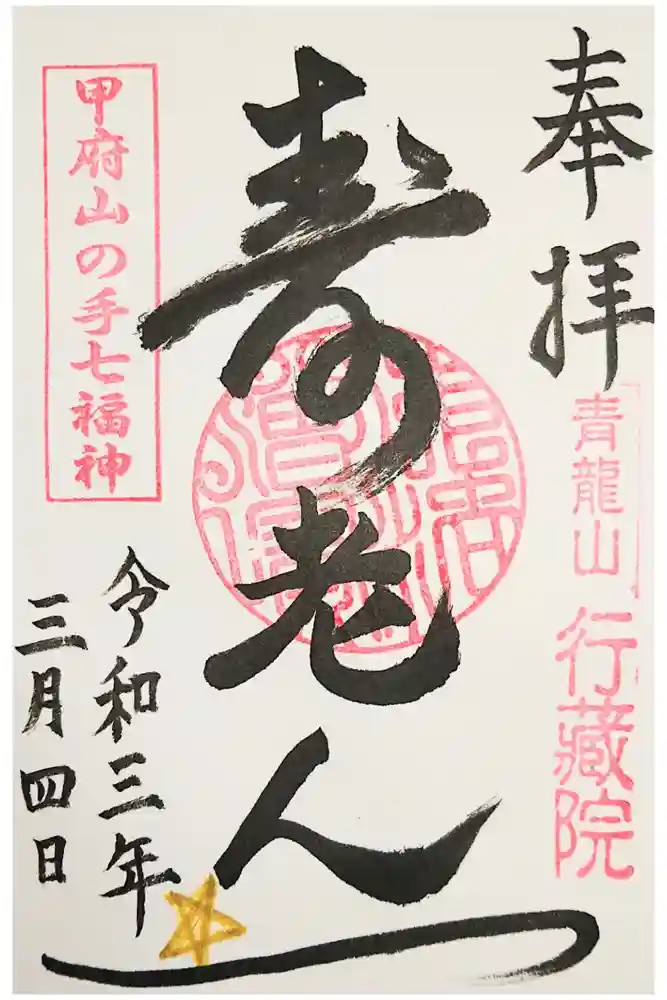 奉拝
青龍山 行藏院
寿老人
甲府山の手七福神
令和三年
三月四日